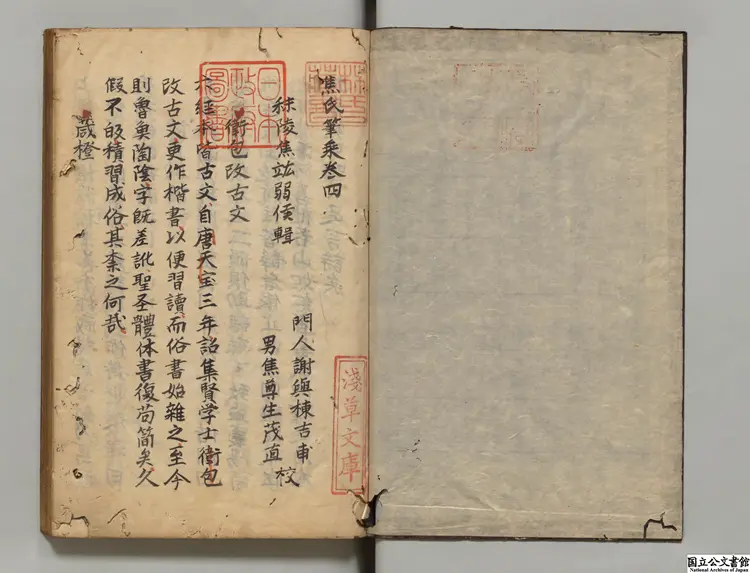 焦氏筆乘巻四
秣陵焦竑弱侯輯
門人謝與棟吉甫
男焦尊生茂直 校
衛包改古文
六経本皆古文自唐天宝三年詔集賢学士衛包
改古文更作楷書以便習讀而俗書始雑之至今
則魯奥陶陰字既差訛聖圣體体書復苟簡矣久
假不的積習成俗其柰之何哉
葴橙
日本
政府
圖書
淺草文庫
国立公文書館
National Archives of Japan